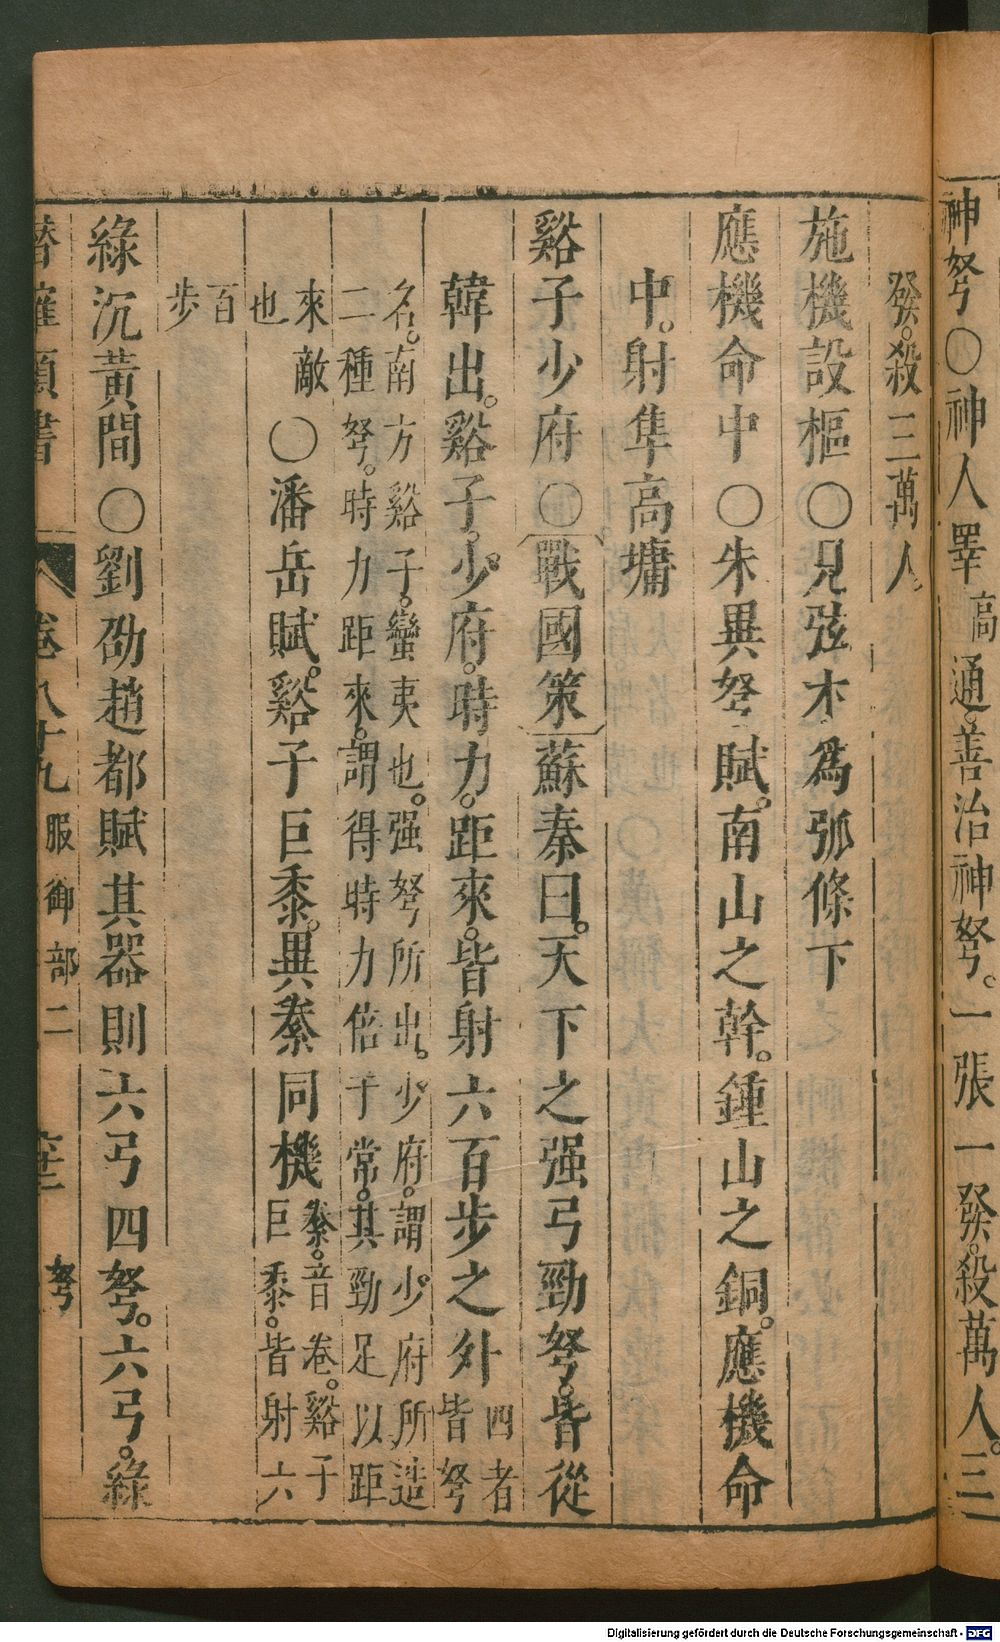 神弩〇神人畧高通。善治神弩。一張一發。殺萬人。三
發。殺三萬人
施機設樞〇見弦木爲弧條下
應機命中〇朱異弩賦。南山之幹。鍾山之銅。應機命
中。射隼高墉
谿子少府〇戰國策蘇秦曰。天下之强弓勁弩。皆從
韓出。谿子。少府。時力。距來。皆射六百步之外四者皆弩
名。南方谿子。蠻夷也。强弩所出。少府。謂少府所造
二種弩。時力距來。謂得時力倍于常。其勁足以距
來敵也〇潘岳賦。谿子巨黍。異絭同機絭。音卷。谿子巨黍。皆射六
百步
綠沉黃間〇劉劭趙都賦其器則六弓四弩。六弓。綠
卷八十九服御部二 弩
Digitalisierung gefördert durch die Deutsche Forschungsgemeinschaft - DFG